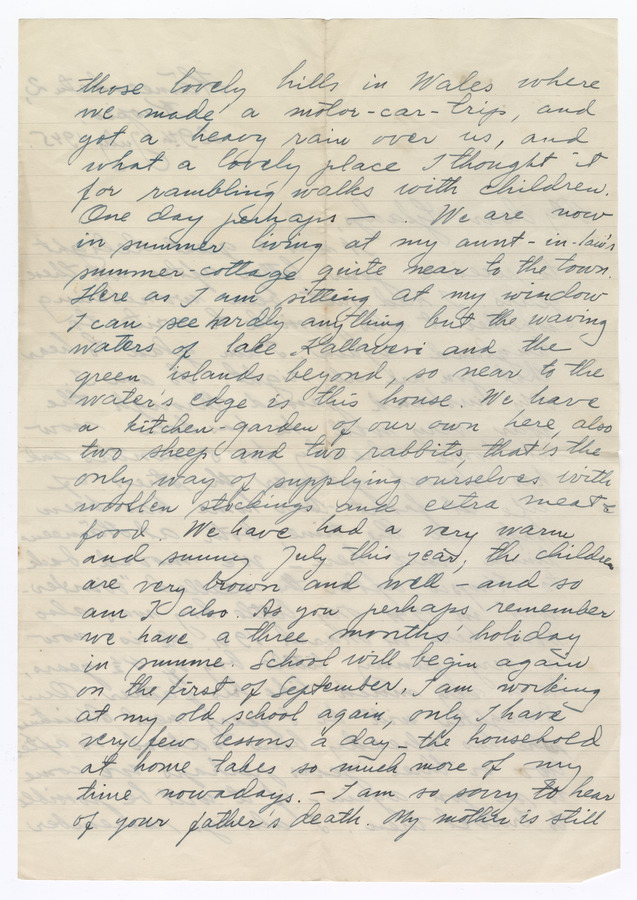 those lovely hills in Wales where
we made a motor-car-trip, and
got a heavy rain over us, and
what a lovely place I thought it
for rambling walks with children.
One day perhaps — . We are now
in summer living at my aunt-in-law's
summer-cottage quite near to the town.
Here as I am sitting at my window
I can see hardly anything but the waving
waters of lake Kallavesi and the
green islands beyond, so near to the
water's edge is this house. We have
a kitchen-garden of our own here, also
two sheep and two rabbits, that's the
only way of supplying ourselves with
woollen stockings and extra meat-
food. We have had a very warm
and sunny July this year, the children
are very brown and well - and so
am I also. As you perhaps remember
we have a three months' holiday
in summe. School will begin again
on the first of September. I am working
at my old school again, only I have
very few lessons a day - the household
at home takes so much more of my
time nowadays. - I am so sorry to hear
of your father's death. My mother is still